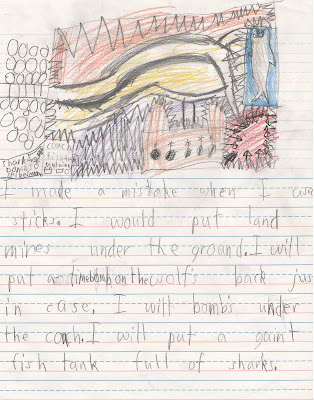 shark
bomb
I made a mistake when I use
sticks. I would put land
mines under the ground. I will
put a timebomb on the wolf's back jus
in case. I will bombs under
the coach. I will put a gaint
fish tank full of sharks.